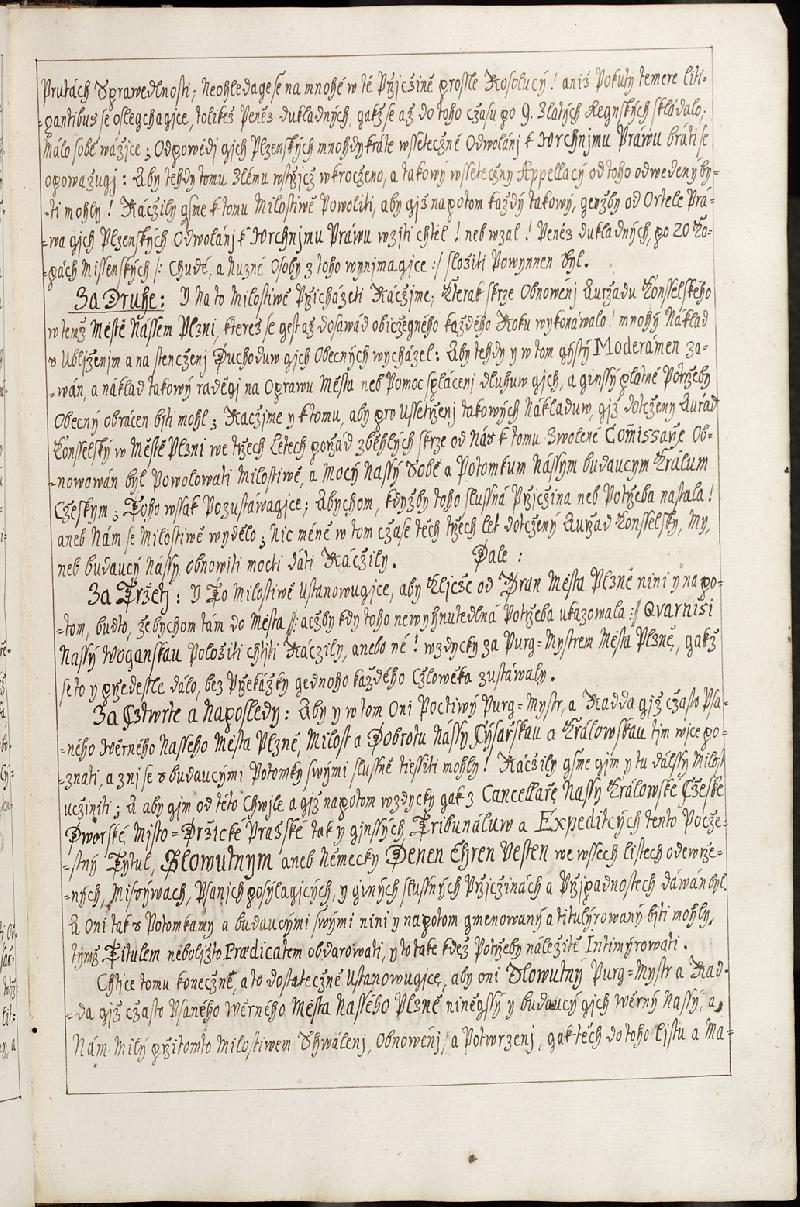 Prutách Sprawedlnosti; Neohledage se na mnohé w té Przjczině prossle Rosolucý! aniž Pokuty temere liti-
-gantibus se oslegchagjce, tolikéž Peněz dukladných, gakž se až do toho czasu po 9. Zlatých Regnských skládalo;
Málo sobě wážjce; Odpowědj gjch Plzenských mnohdykráte wssetečzné Odwolánj k Wrchnjmu Práwu bráti se
opowažugj: Aby tehdy tomu Zlému wstřjcž wkroczeno, a takowý wssetečzny Appellacý od toho odwedeny by-
-ti mohly! Ráczily gsme k tomu Milostiwě Powoliti, aby gjž napotom každý takowý, genžby od Ortele Prá-
-wa gjch Plzenských Odwolánj k Wrchnjmu Práwu wzjti chtěl! neb wzal! Peněz dukladných, po 20 Ko-
-pách Missenských /: Chudé, a Nuzné Osoby z toho wynjmagjce :/ složiti Powynnen byl.
Za Druhé: Y Na to Milostiwě Przicházeti Ráczjme; Kterak skrze Obnowenj Auržadu Konsselského
w temž Městě Nassem Plzni, kterež se gest až dosawád obiczegného každého Roku wykonáwalo! mnohý Náklad
s Ubljženjm a na stenczenj Duchoduw gjch Obecných wycházel: Aby tehdy y w tom gistý Moderamen za-
-wán, a náklad takowý raděgj na Oprawu Města neb Pomoc splácenj dluhuw gjch, a ginssý platné Potržeby
Obecný obrácen býti mohl; Ráczjme y k tomu, aby pro Ussetrženj takowých Nákladuw, gjž dotczeny Auržad
Konsselský w Městě Plzni we tržech Letech poržad zběhlých skrze od Nás k tomu Zwolené Comissarže Ob-
-nowowán byl Powolowati Milostiwě, a Mocý Nassý Sobě a Potomkum Nássym budaucym Králum
Czeskym; Toho wssak Pozustáwagjce; Abychom, kdyžby toho slussná Przjczina neb Potržeba nastala!
aneb Nám se Milostiwě wydělo; Nic méně w tom czase těch tržech let dotczený Auržad Konsselský, My,
neb budaucý Nássý obnowiti mocti dáti Ráczily. Dale:
Za Tržetj: Y To Milostiwě Ustanowugjce, aby Kljcze od Bran Města Plzně nini y napo-
-tom, buďto, že bychom tám do Města /: aczby kdy toho newyhnutedlná Potržeba ukazowala :/ Qvarnisi
Nassý Woganskau Položiti chtiti Ráczily, anebo né! wzdycky za Purg-Mystrem Města Plzně, gakž
se to y pržedessle dálo, bez Pržekážky gednoho každého Czlowěka zustáwaly.
Za Cztwrté a Naposledy: Aby y w tom Oni Poctiwý Purg-Mystr, a Radda gjž czasto Psa-
-ného Wěrného Nasseho Města Plzně, Milost a Dobrotu Nássý Cýsaržskau a Králowskau tjm wjce po-
-znati, a znj se s budaucými Potomky swými slussně tiessiti mohly! Ráczily gsme gjm y tu dalssý Milost
ucžiniti; A aby gjm od této Chwjle a gjž napotom wzdycky gak z Cancellarže Nassý Králowské Czeské
Dworské, Mjsto-Držické Pražské tak y ginssých Tribunáluw a Expedicých tento Pocze-
-stný Tytul, Slowutnym aneb Německy Denen Ehren Vesten we wssech listech odewrže-
-ných, Missýwach, Psanjch posýlagjcých, y giných slussných Przjczinách a Przjpadnostech dáwán byl,
A Oni tak s Potomkamy a budaucými swými nini y napotom gmenowaný a titulýrowaný býti mohly,
týmž Titulem neboližto Prædicátem obdarowati, y to také kdež Potržeby náležitě Intimýrowati.
Chtice tomu konečzně, a to dostatečzně Ustanowugjce, aby oni Slowutny Purg-Mystr a Rad-
-da gjž czasto Psaného Wěrného Města Nassého Plzně niněgssý y budaucý gjch wěrný Nassý, a
Nám Milý pržitomto Milostiwém Schwálenj, Obnowenj, a Potwrzenj, gak těch do toho Listu a Ma-